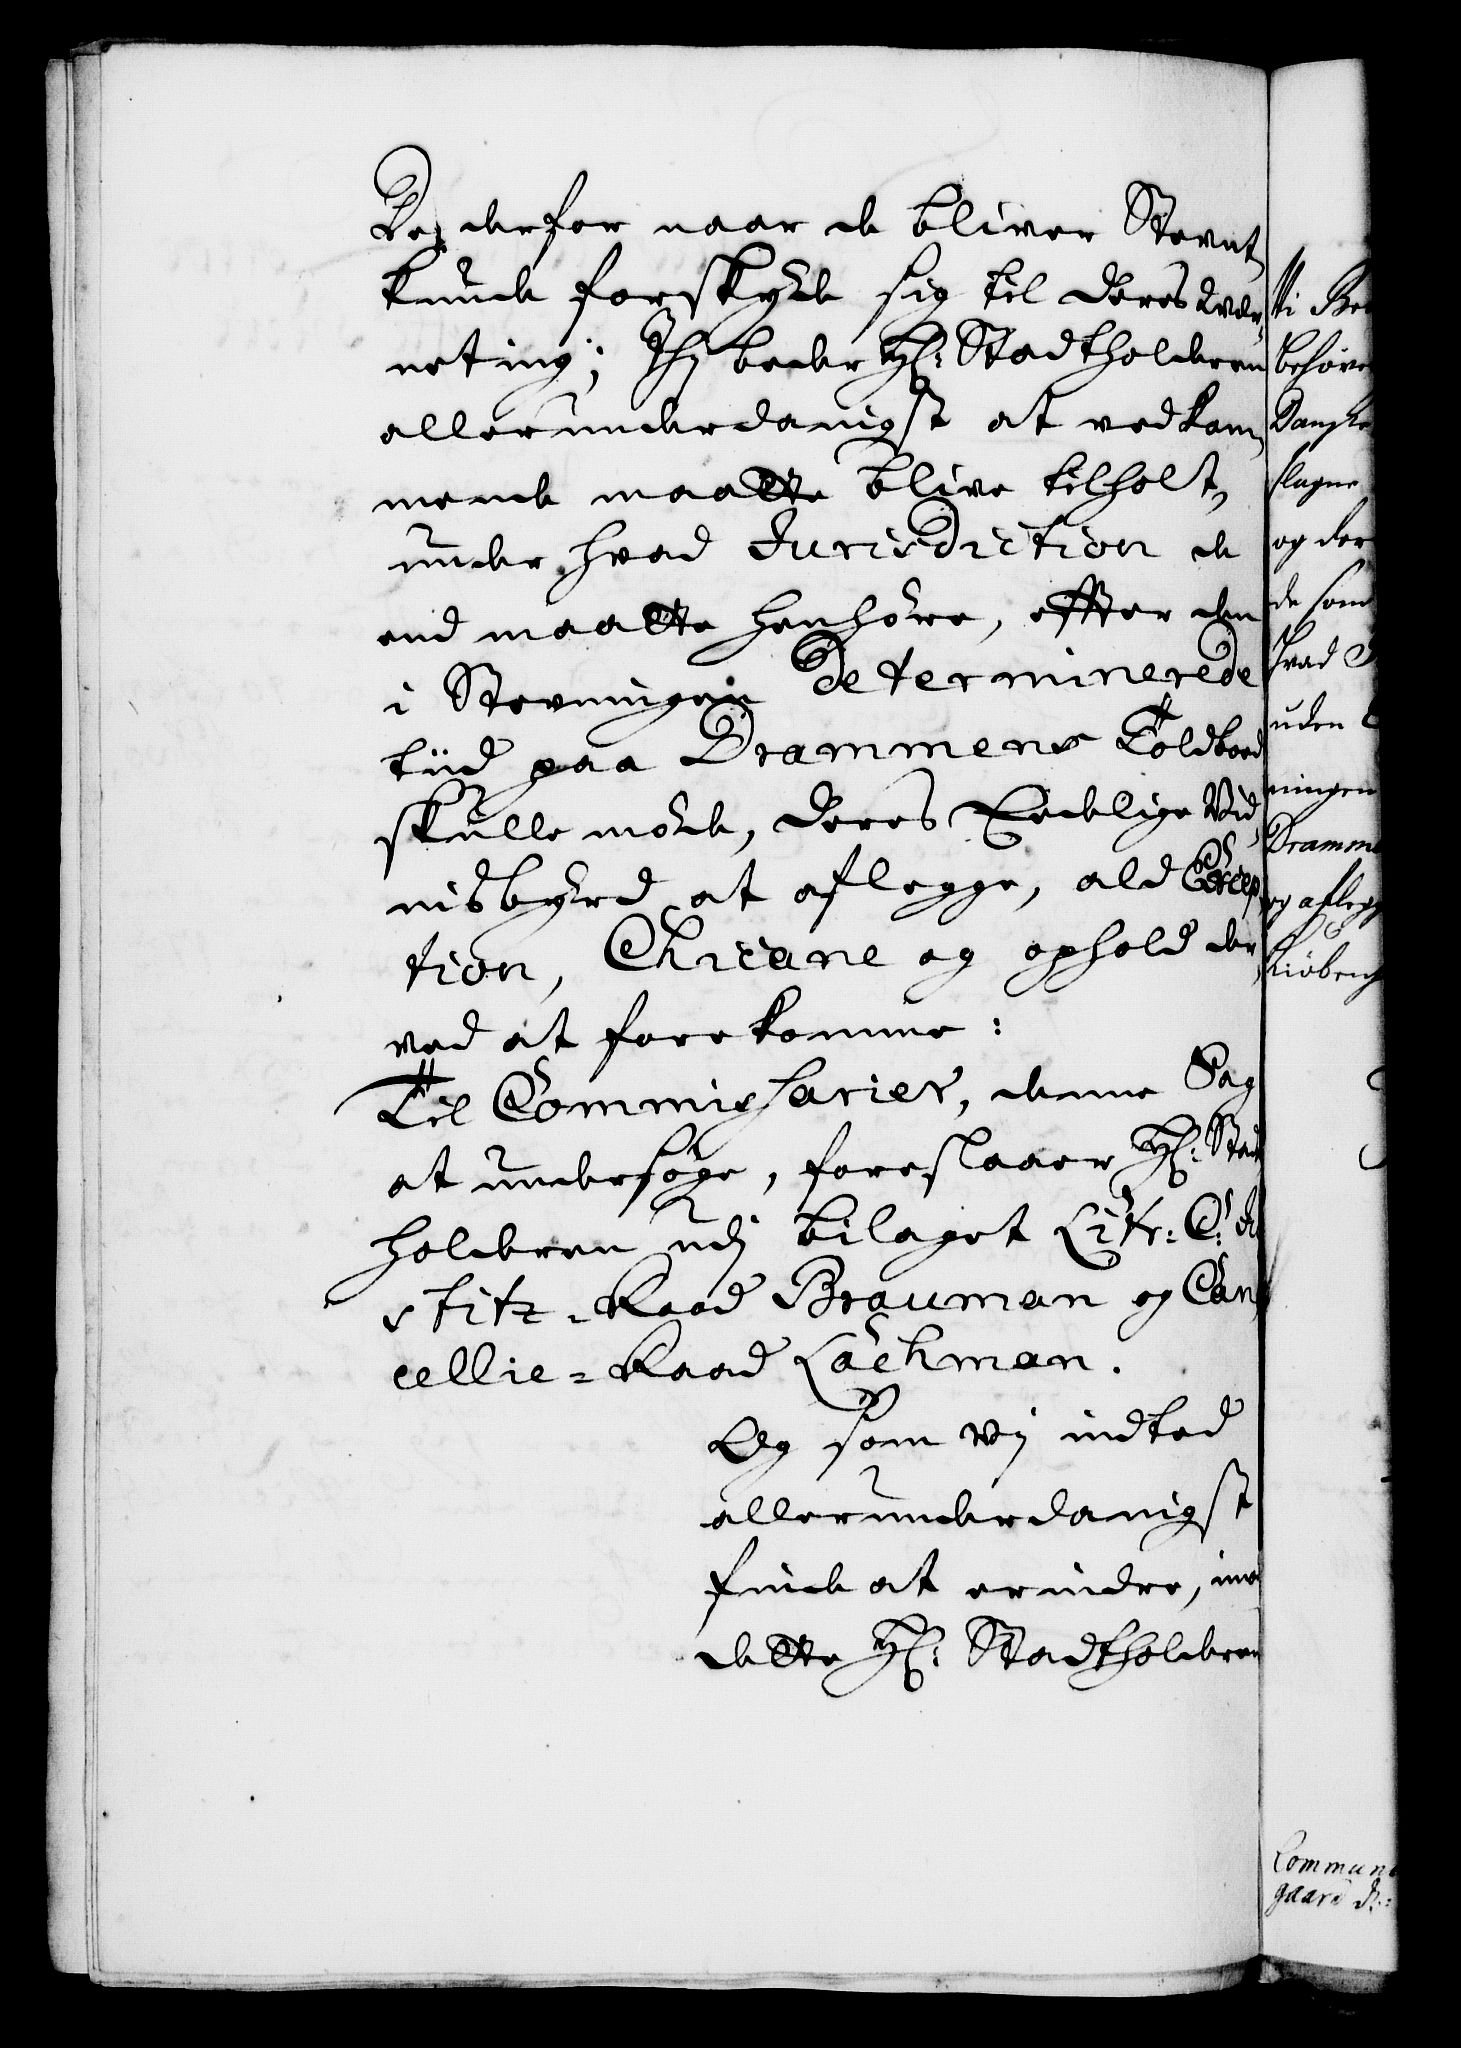 De derfor naar de bliver Stevnt,
kunde forskyde sig til deres Vær-
neting; Thj beder H: Stadtholderen
allerunderdanigst at vedkom-
mende maatte blive tilholt,
under hvad Jurisdiction de
end maatte henhöre, effter den
i Stevningen determinerede
tiid paa Drammens Toldboed
skulle möde, deres Eedelige Vid-
nisbyrd at aflegge, ald Excep-
tion, Chicane og ophold der-
ved at forekomme:
Til Commissarier, denne Sag
at undersöge, foreslaaer H: Stadt
holderen udj bilaget Litr: C: Ju
stitz-Raad Brauman og Can
cellie-Raad Lachman.
Og som vij indted
allerunderdanigst
finde at erindre, imod
dette H: Stadtholderens
ti Be
behöve
Danske
slagne
og der
de som
hvad J
uden
ningen
Dramme
og aflegg
Kiöbenh
Commun
gaard d: